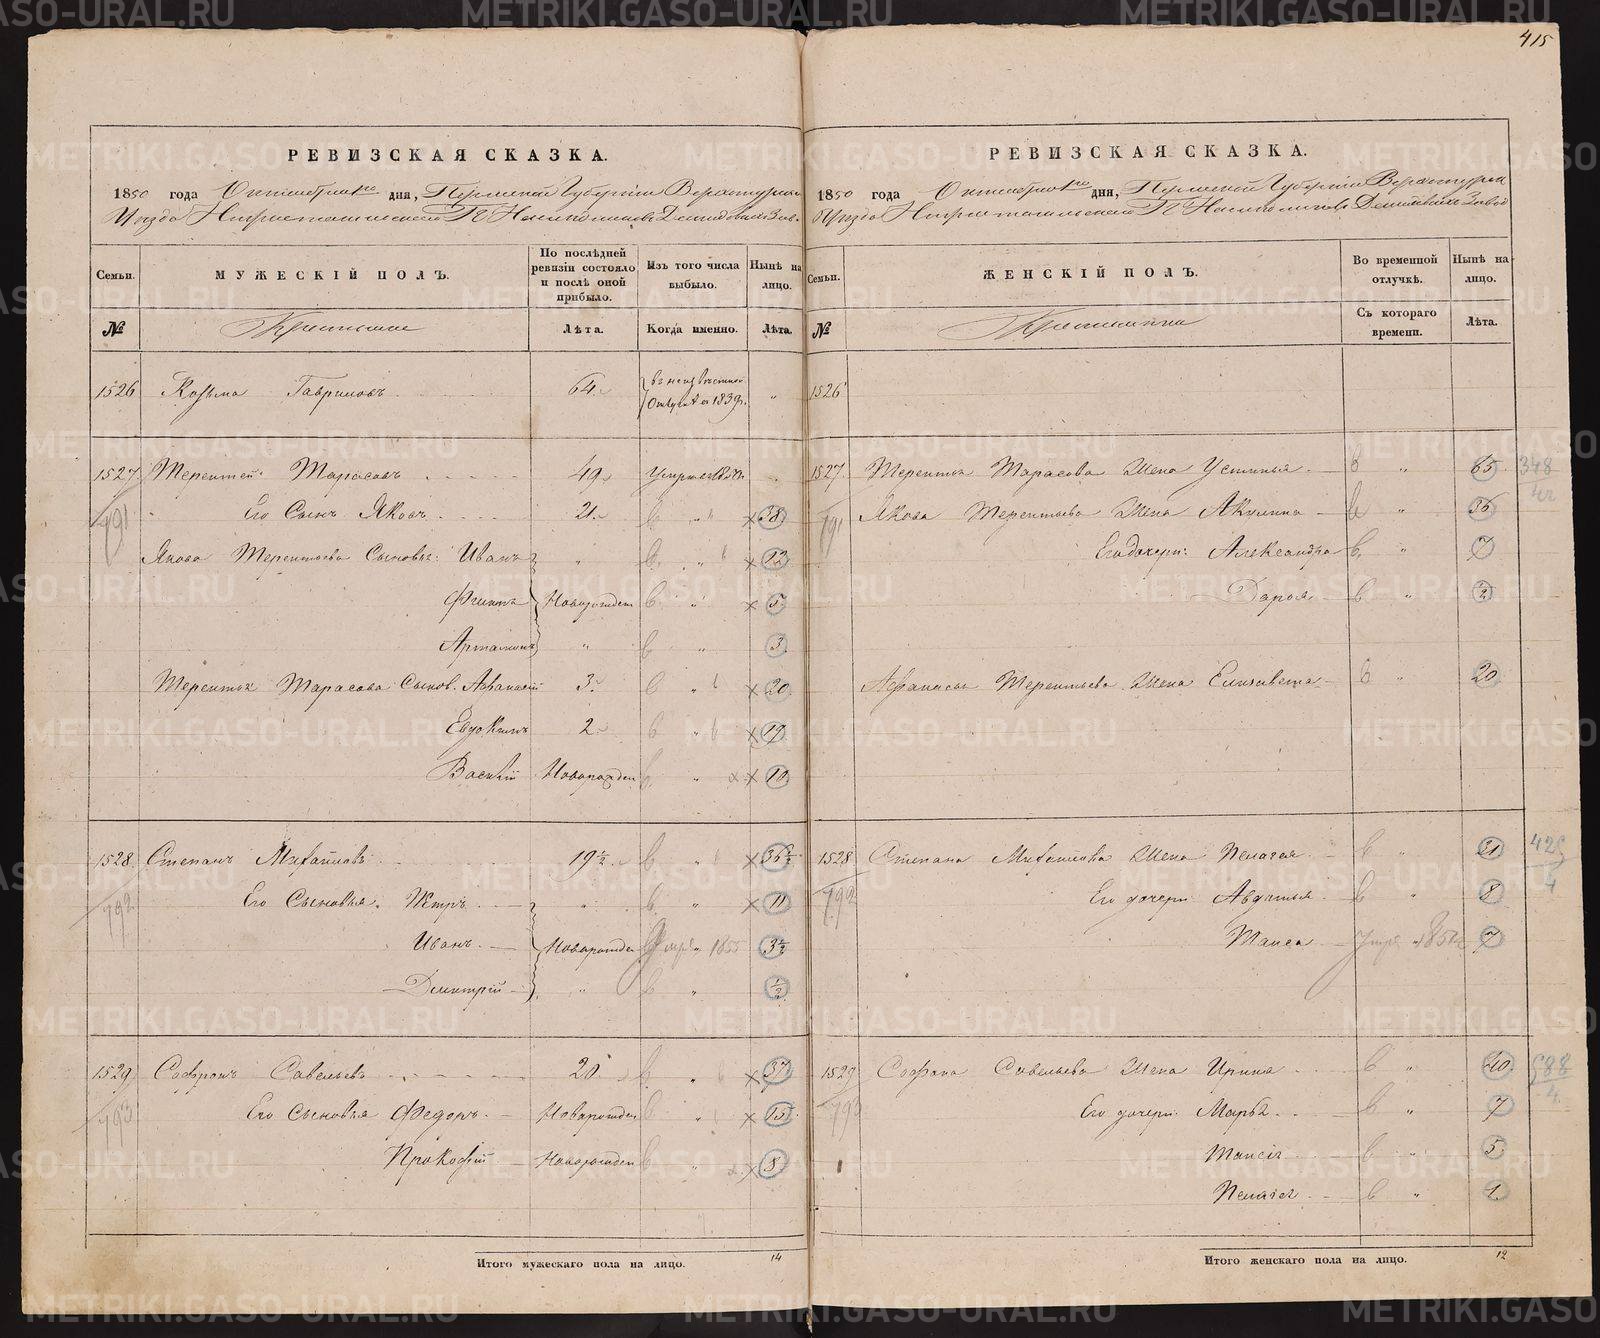 415
РЕВИЗСКАЯ СКАЗКА.
1850 года Октября дня, Пермской Губернии Верхотурскаго
Уѣзда Нижнетагильскаго Г.г. Наслѣдниковъ Демидовыхъ Зав.
Семьи. МУЖЕСКІЙ ПОЛЪ. По послѣдней ревизіи состояло и послѣ оной прибыло. Изъ того числа выбыло. Нынѣ на лицо.
№ Крестьяне Лѣта. Когда именно. Лѣта.
1526 Козьма Гавриловъ 64 въ неизвѣстной Отлучкѣ съ 1839 г. "
1527 Терентей Тарасовъ 49 Умре
791 Его Сынъ Яковъ 21 " 38
Якова Терентьева Сыновья: Иванъ " " 12
Филипъ Новорожден " 5
Артамонъ " " 3
Терентья Тарасова Сынов. Афанасій 3 " 20
Евдокимъ 2 " 19
Василій Новорожден " 10
1528 Степанъ Михайловъ 19½ 36½
792 Его Сыновья Петръ " " 11
Иванъ Новорожден Умре 1855 3½
Дмитрій " " ½
1529 Софронъ Савельевъ 20 " 37
793 Его Сыновья Федоръ Новорожден " 15
Прокофій Новорожден " 8
Итого мужескаго пола на лицо. 14
РЕВИЗСКАЯ СКАЗКА.
1850 года Октября дня, Пермской Губерніи Верхотурскаго
Уѣзда Нижнетагильскаго Г.г. Наслѣдниковъ Демидовыхъ Завод
Семьи. ЖЕНСКІЙ ПОЛЪ. Во временной отлучкѣ. Нынѣ на лицо.
№ Крестьянки Съ котораго времени. Лѣта.
1526
1527 Терентья Тарасова Жена Устинья " 65 348
791 Якова Терентьева Жена Акулина " 36
Его дочери: Александра " 7
Дарья " 2
Афанасья Терентьева Жена Елисавета " 20
1528 Степана Михайлова Жена Пелагея " 31
792 Его дочери Авдотья " 8
Таиса Умре 7
1529 Софрона Савельева Жена Ирина " 40 588/4
793 Его дочери Марфа " 7
Таисія " 5
Пелагея " 1
Итого женскаго пола на лицо. 12
METRIKI.GASO-URAL.RU